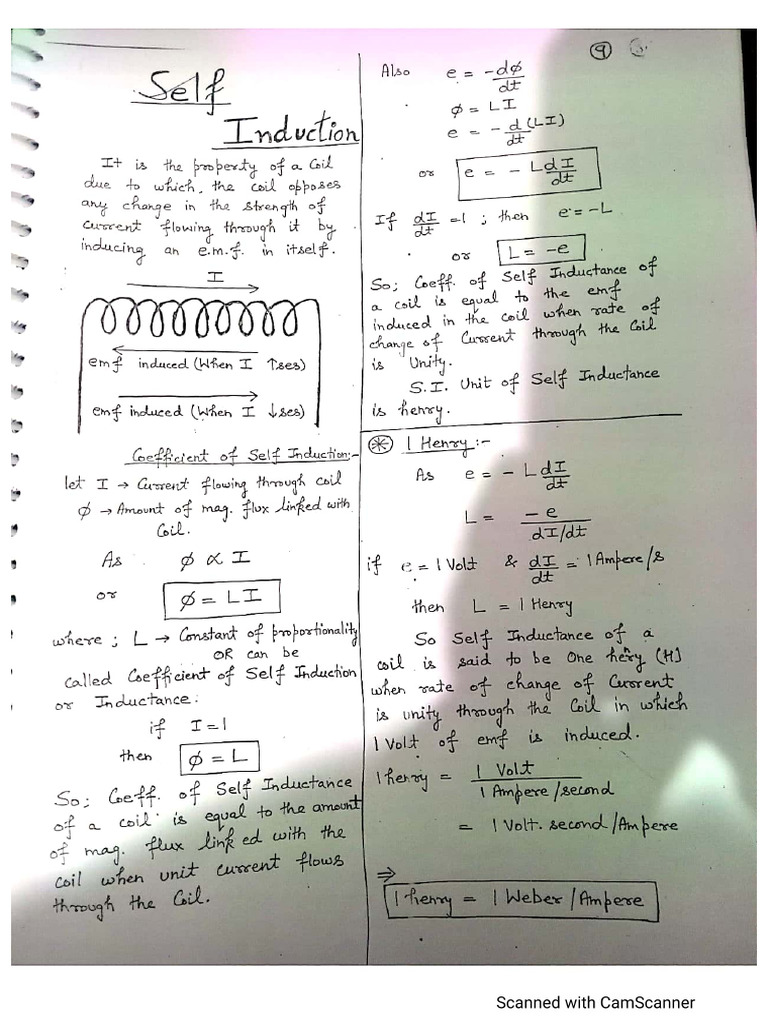 9
Self
Induction
It is the property of a Coil
due to which, the coil opposes
any change in the strength of
current flowing through it by
inducing an e.m.f. in itself.
I
emf induced (When I ↑ses)
emf induced (When I ↓ses)
Coefficient of Self Induction:-
let I → Current flowing through coil
ϕ → Amount of mag. flux linked with
Coil.
As ϕ ∝ I
or ϕ = LI
where ; L → Constant of proportionality
OR can be
called Coefficient of Self Induction
or Inductance.
if I = 1
then ϕ = L
So; Coeff. of Self Inductance
of a coil is equal to the amount
of mag. flux linked with the
coil when unit current flows
through the Coil.
Also e = -dϕ/dt
ϕ = LI
e = -d(LI)/dt
or e = - LdI/dt
If dI/dt = 1 ; then e = -L
or L = -e
So; Coeff. of Self Inductance of
a coil is equal to the emf
induced in the coil when rate of
change of Current through the Coil
is Unity.
S.I. Unit of Self Inductance
is henry.
* 1 Henry:-
As e = - LdI/dt
L = -e/dI/dt
if e = 1 Volt & dI/dt = 1 Ampere/s
then L = 1 Henry
So Self Inductance of a
coil is said to be One henry (H)
when rate of change of Current
is unity through the Coil in which
1 Volt of emf is induced.
1 henry = 1 Volt/1 Ampere/second
= 1 Volt. second/Ampere
⇒
1 henry = 1 Weber/Ampere
Scanned with CamScanner